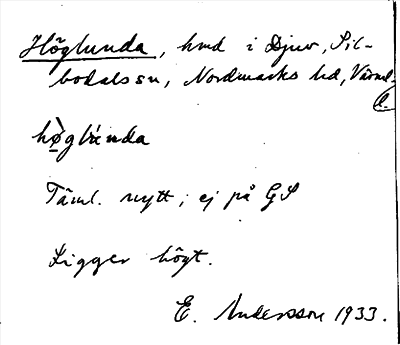 Höglunda, hmd i Djuv, Sil-
bodals sn, Nordmarks hd, Värml.
l.
hò̲glúnda
Täml. nytt; ej på GS
Ligger högt.
E. Andersson 1933.